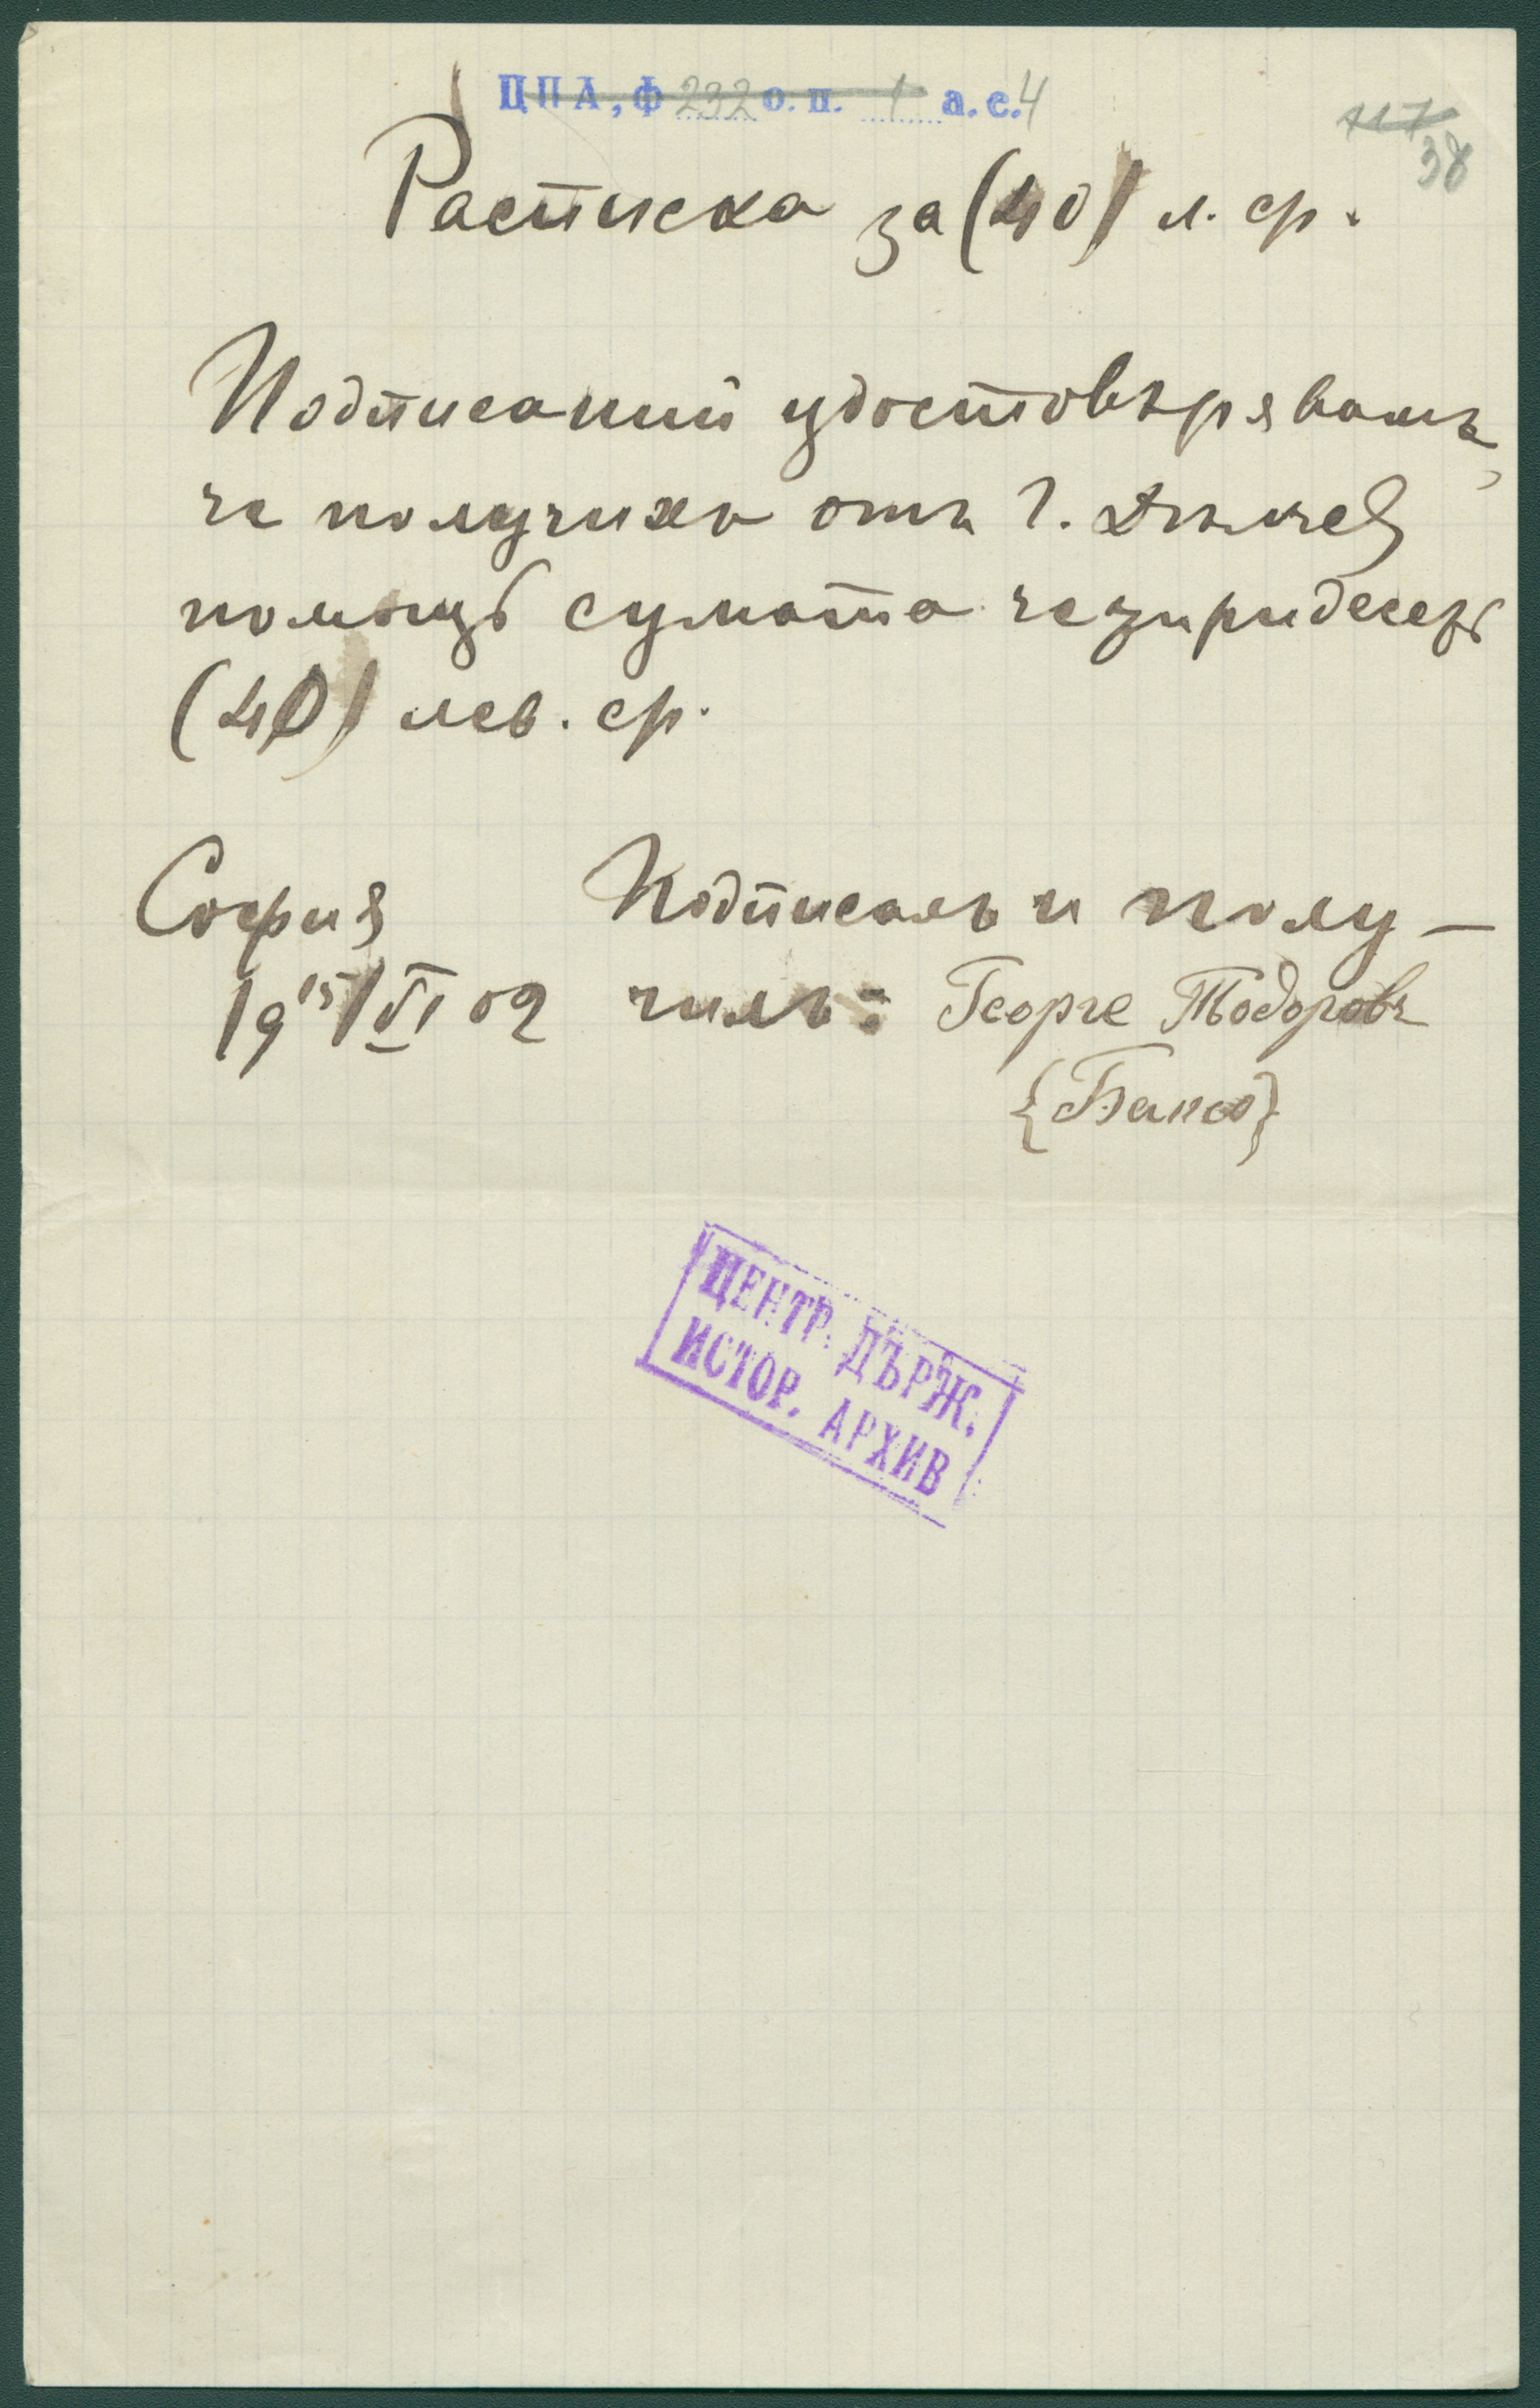 ЦПА, ф 232 о. п. 1 а. е. 4
117
38
Расписка за (40) л. ср.
Подписаний удостовѣрявамъ,
че получихъ отъ Г. Дѣлчев
помощь сумата четиридесеть
(40) лев. ср.
София Подписалъ и полу-
19 15/VI 02 чилъ: Георге Тодоровъ
{Банско}
ЦЕНТР. ДЪРЖ.
ИСТОР. АРХИВ